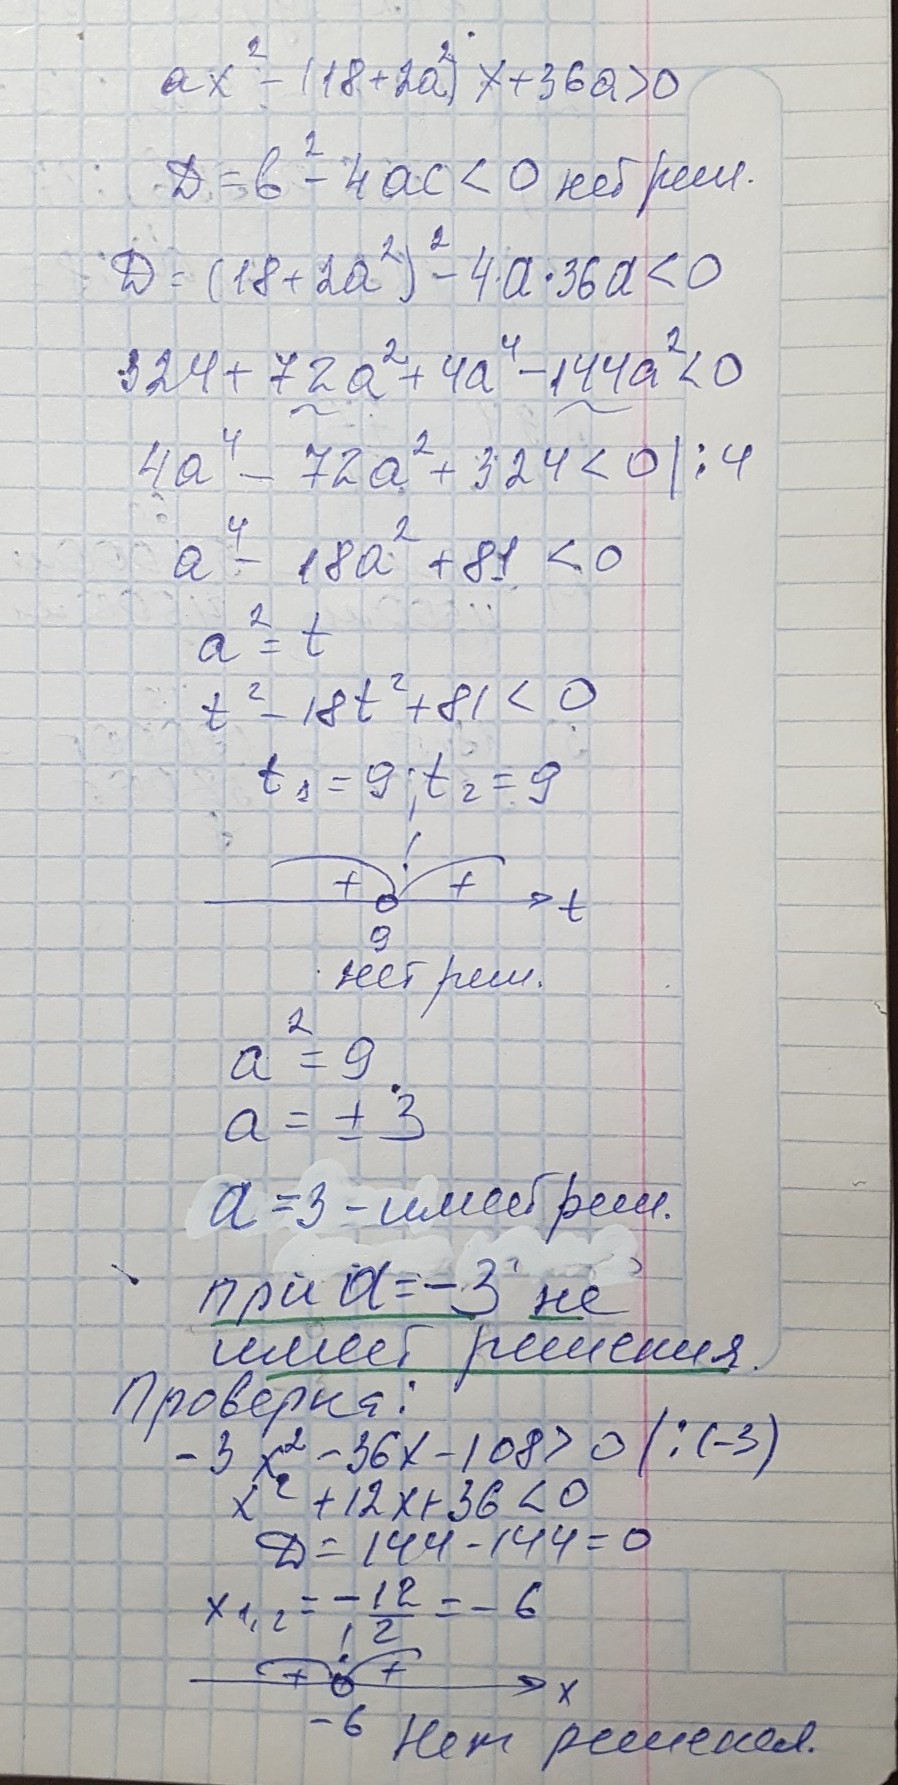 ax² - (18+2a²)x+36a>0
D=b²-4ac<0 нет реш.
D=(18+2a²)²-4·a·36a<0
324+72a²+4a⁴-144a²<0
4a⁴-72a²+324<0|:4
a⁴-18a²+81<0
a²=t
t²-18t²+81<0
t₁=9; t₂=9
+ + t
9
нет реш.
a²=9
a=±3
a=3-имеет реш.
при a=-3 не
имеет решения.
Проверка:
-3x²-36x-108>0|:(-3)
x²+12x+36<0
D=144-144=0
x₁,₂=-12/2=-6
+ + x
-6
Нет решения.